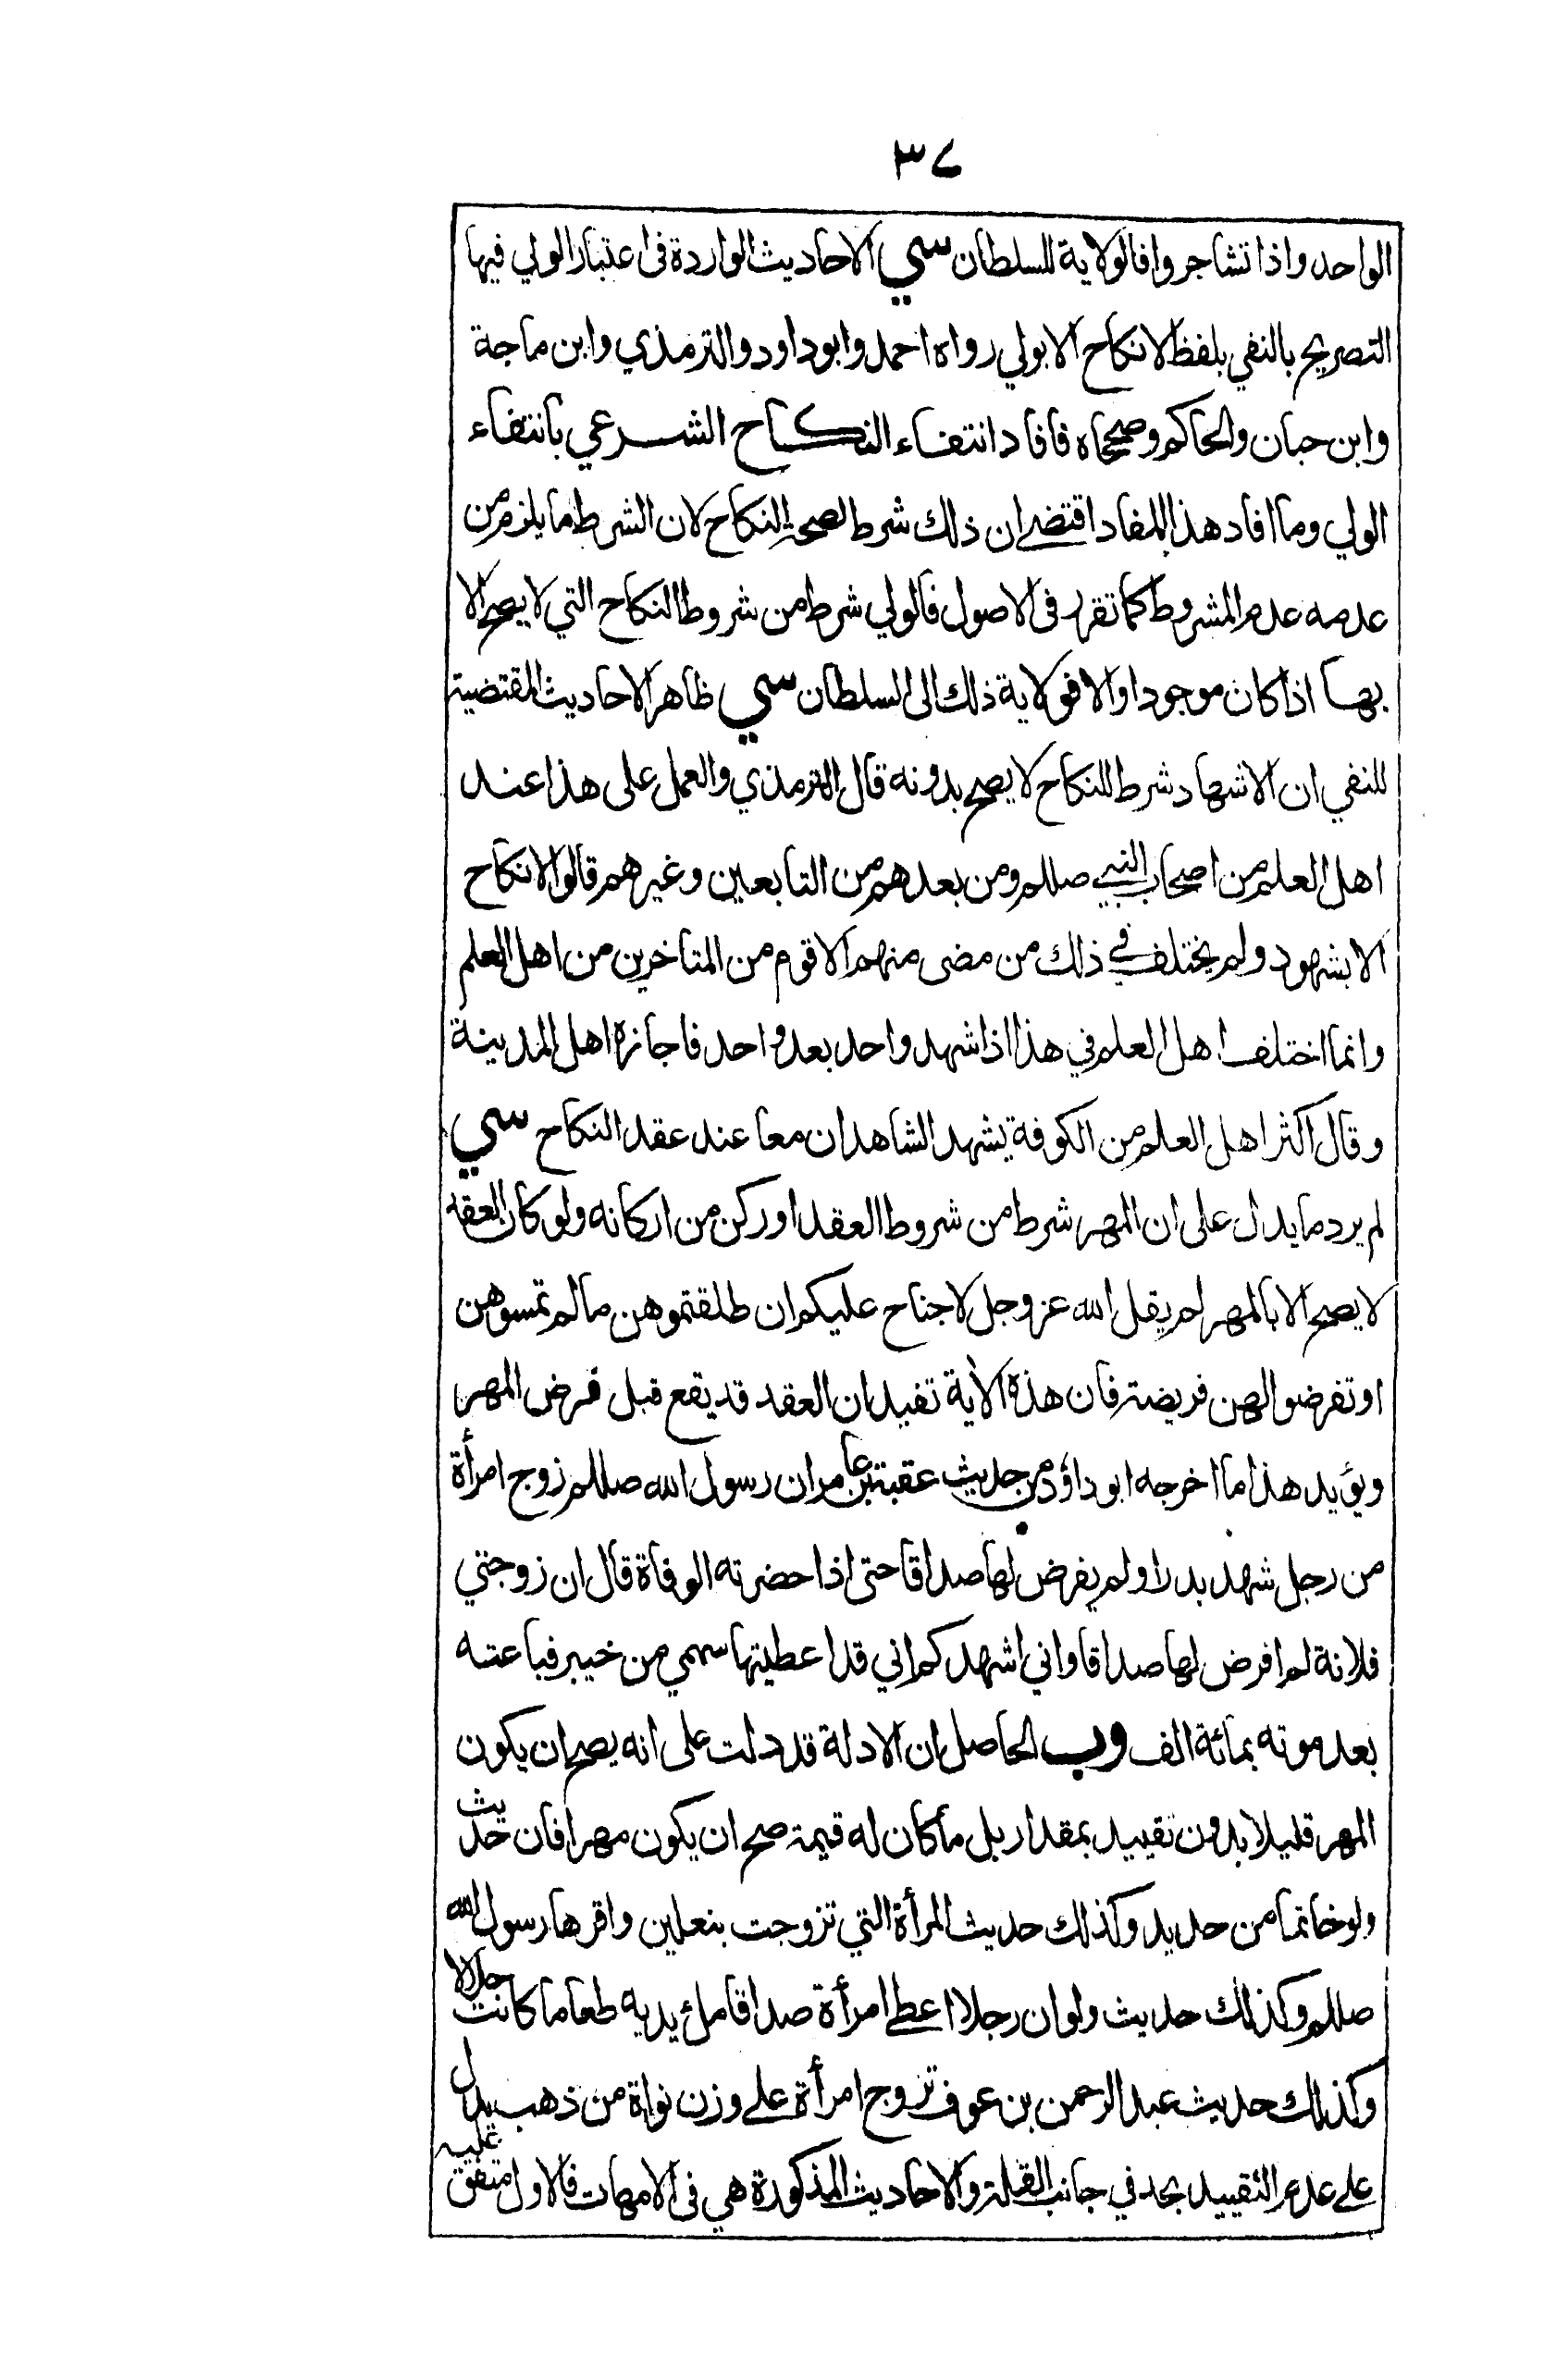 ٣٧
الواحد واذا تشاجروا فالولاية للسلطان سي الاحاديث الواردة فى اعتبار الولي فيها
التصريح بالنفي بلفظ لا نكاح الا بولي رواه احمد وابو داود والترمذي وابن ماجة
وابن حبان والحاكم وصححاه فافاد انتفاء النكاح الشرعي بانتفاء
الولي وما افاد هذا المفاد اقتضى ان ذلك شرط لصحة النكاح لان الشرط ما يلزم من
عدمه عدم المشروط كما تقرر فى الاصول فالولي شرط من شروط النكاح التي لا يصح الا
بها اذا كان موجودا والا فولاية ذلك الى السلطان سي ظاهر الاحاديث المقتضية
للنفي ان الاشهاد شرط للنكاح لا يصح بدونه قال الترمذي والعمل على هذا عند
اهل العلم من اصحاب النبي صللم ومن بعدهم من التابعين وغيرهم قالوا لا نكاح
الا بشهود ولم يختلف في ذلك من مضى منهم الا قوم من المتاخرين من اهل العلم
وانما اختلف اهل العلم في هذا اذا شهد واحد بعد واحد فاجازه اهل المدينة
وقال اكثر اهل العلم من الكوفة يشهد الشاهدان معا عند عقد النكاح سي
لم يرد ما يدل على ان المهر شرط من شروط العقد او ركن من اركانه ولو كان العقد
لا يصح الا بالمهر لم يقل الله عز وجل لا جناح عليكم ان طلقتموهن مالم تمسوهن
او تفرضوا لهن فريضة فان هذه الأية تفيد ان العقد قد يقع قبل فرض المهر
ويؤيد هذا ما اخرجه ابو داؤد من حديث عقبة بن عامر ان رسول الله صللم زوج امرأة
من رجل شهد بدرا ولم يفرض لها صداقا حتى اذا حضرته الوفاة قال ان زوجتي
فلانة لم افرض لها صداقا واني اشهدكم اني قد اعطيتها سهمي من خيبر فباعته
بعد موته بمائة الف وب الحاصل ان الادلة قد دلت على انه يصح ان يكون
المهر قليلا بدون تقييد بمقدار بل ما كان له قيمة صح ان يكون مهرا فان حديث
ولو خاتما من حديد وكذلك حديث المرأة التي تزوجت بنعلين واقرها رسول الله
صللم وكذلك حديث ولو ان رجلا اعطى امرأة صداقا ملئ يديه طعاما كانت حلالا
وكذلك حديث عبد الرحمن بن عوف تزوج امرأة على وزن نواة من ذهب يدل
على عدم التقييد بحد في جانب القلة والاحاديث المذكورة هي فى الامهات فالاول متفق عليه